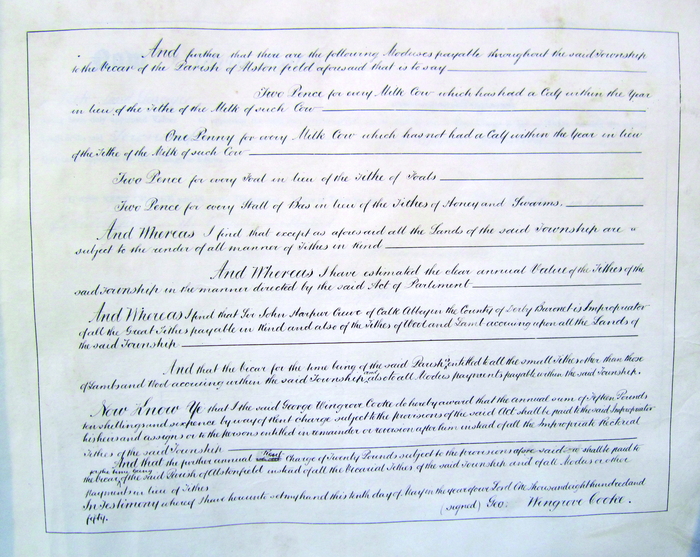 And further that there are the following Moduses payable throughout the said Township
to the Vicar of the Parish of Alstonfield aforesaid that is to say
Two Pence for every Milk Cow which has had a Calf within the Year
in lieu of the Tithe of the Milk of such Cow
One Penny for every Milk Cow which has not had a Calf within the Year in lieu
of the Tithe of the Milk of such Cow
Two Pence for every Foal in lieu of the Tithe of Foals
Two Pence for every Stall of Bees in lieu of the Tithes of Honey and Swarms.
And Whereas I find that except as aforesaid all the Lands of the said Township are
subject to the render of all manner of Tithes in Kind
And Whereas I have estimated the clear annual Value of the Tithes of the
said Township in the manner directed by the said Act of Parliment
And Whereas I find that Sir John Harpur Crewe of Calk Abbey in the County of Derby Baronet is Impropriator
of all the Great Tithes payable in Kind and also of the Tithes of Wool and Lamb accruing upon all the Lands of
the said Township
And that the Vicar for the time being of the said Parish is entitled to all the small Tithes other than those
of Lamb and Wool accruing within the said Township and also to all Modus payments payable within the said Township.
Now Know Ye that I the said George Wingrove Cooke do hereby award that the annual sum of Fifteen Pounds
ten shillings and sixpence by way of Rent charge subject to the provisions of the said Act shall be paid to the said Impropriator
his heirs and assigns or to the persons entitled in remainder or reversion after him instead of all the Impropriate Rectorial
Tithes of the said Township
And that the further annual Rent Charge of Twenty Pounds subject to the provisions aforesaid shall be paid to
for the time being
the Vicar of the said Parish of Alstonfield instead of all the Vicarial Tithes of the said Township and of all Modus or other
Payments in lieu of Tithes
In Testimony whereof I have hereunto set my hand this tenth day of May in the year of our Lord One thousand eight hundred and
fifty. (signed) Geo. Wingrove Cooke.